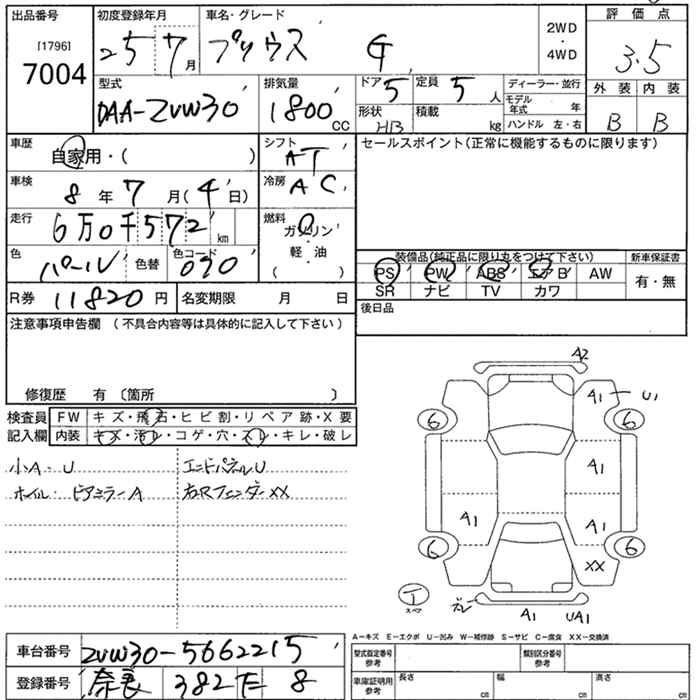 出品番号
[1796]
7004
初度登録年月
25 7月
車名・グレード
プリウス G
2WD
・
4WD
評価点
3.5
型式
DAA-ZVW30
排気量
1800cc
ドア 5
定員 5人
形状 HB
積載 kg
ディーラー・並行
モデル年式 年
ハンドル 左・右
外装 内装
B B
車歴
自家用・( )
シフト AT
セールスポイント(正常に機能するものに限ります)
車検
8年7月(4日)
冷房 AC
走行
6万0千572km
燃料
ガソリン
軽・油
( )
色 パール
色替
色コード 070
装備品(純品品に限り丸をつけて下さい)
新車保証書
PS PW ABS エアB AW
有・無
SR ナビ TV カワ
R券 11820円
名変期限 月 日
後日品
注意事項申告欄 (不具合内容等は具体的に記入して下さい)
修復歴 有 〔箇所 〕
検査員
記入欄
FW キズ・飛石・ヒビ割・リペア跡・X要
内装 キズ・汚レ・コゲ・穴・スレ・キレ・破レ
小A・U
エンドパネルU
ホイル・ドアミラーA
右Rフェンダー XX
A2
A1 U1
6 6
A1
A1 A1
6 6
XX
T
スペア
ズレ
A1 UA1
A-キズ E-エクボ U-凹み W-補修跡 S-サビ C-腐食 XX-交換済
車台番号 ZVW30-5662215
登録番号 奈良 382 た 8
型式指定番号
参考
類別区分番号
参考
車庫証明用
参考
長さ cm
幅 cm
高さ cm